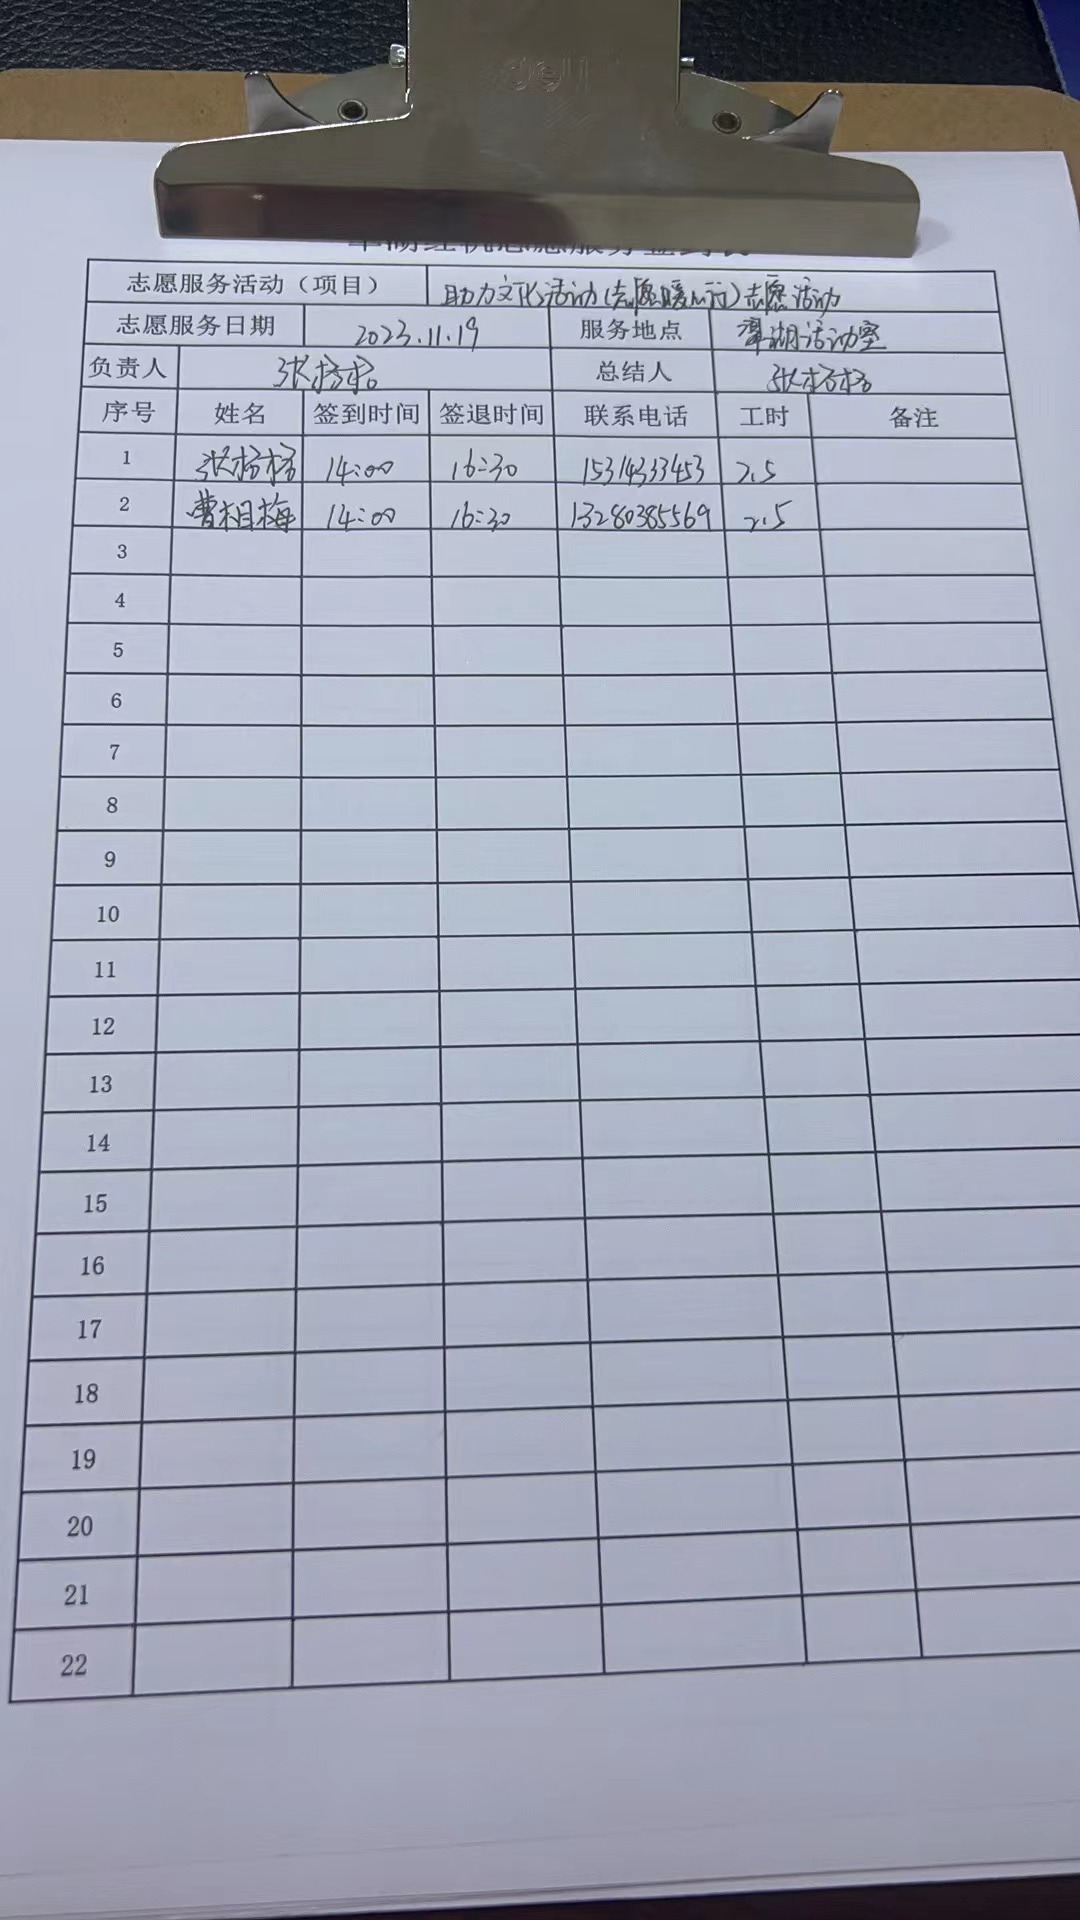 deli
志愿服务活动（项目） 助力文化活动(志愿暖心行)志愿活动
志愿服务日期 2023.11.19 服务地点 湖活动室
负责人 张格格 总结人 张格格
序号 姓名 签到时间 签退时间 联系电话 工时 备注
1 张格格 14:00 16:30 15314333453 2.5
2 曹相梅 14:00 16:30 13280385569 2.5
3
4
5
6
7
8
9
10
11
12
13
14
15
16
17
18
19
20
21
22